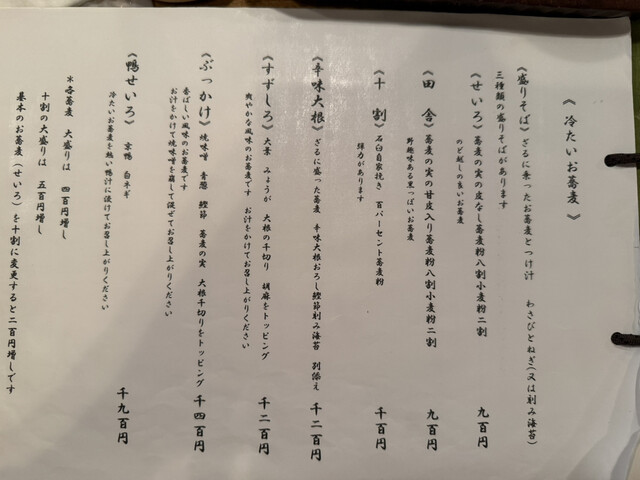 《冷たいお蕎麦》
《盛りそば》ざるに乗ったお蕎麦とつけ汁　わさびとねぎ(又は刻み海苔)
三種類の盛りそばがあります
《せいろ》蕎麦の実の皮なし蕎麦粉八割小麦粉二割　九百円
のど越しの良いお蕎麦
《田舎》蕎麦の実の甘皮入り蕎麦粉八割小麦粉二割　九百円
野趣味ある黒っぽいお蕎麦
《十割》石臼自家挽き　百パーセント蕎麦粉　千百円
弾力があります
《辛味大根》ざるに盛った蕎麦　辛味大根おろし鰹節刻み海苔　別添え　千二百円
《すずしろ》大葉　みょうが　大根の千切り　胡麻をトッピング　千二百円
爽やかな風味のお蕎麦です　お汁をかけてお召し上がりください
《ぶっかけ》焼味噌　青葱　鰹節　蕎麦の実　大根千切りをトッピング　千四百円
香ばしい風味のお蕎麦です
お汁をかけて焼味噌を崩して混ぜてお召し上がりください
《鴨せいろ》京鴨　白ネギ　千九百円
冷たいお蕎麦を熱い鴨汁に漬けてお召し上がりください
＊各蕎麦　大盛りは　四百円増し
十割の大盛りは　五百円増し
基本のお蕎麦(せいろ)を十割に変更すると二百円増しです